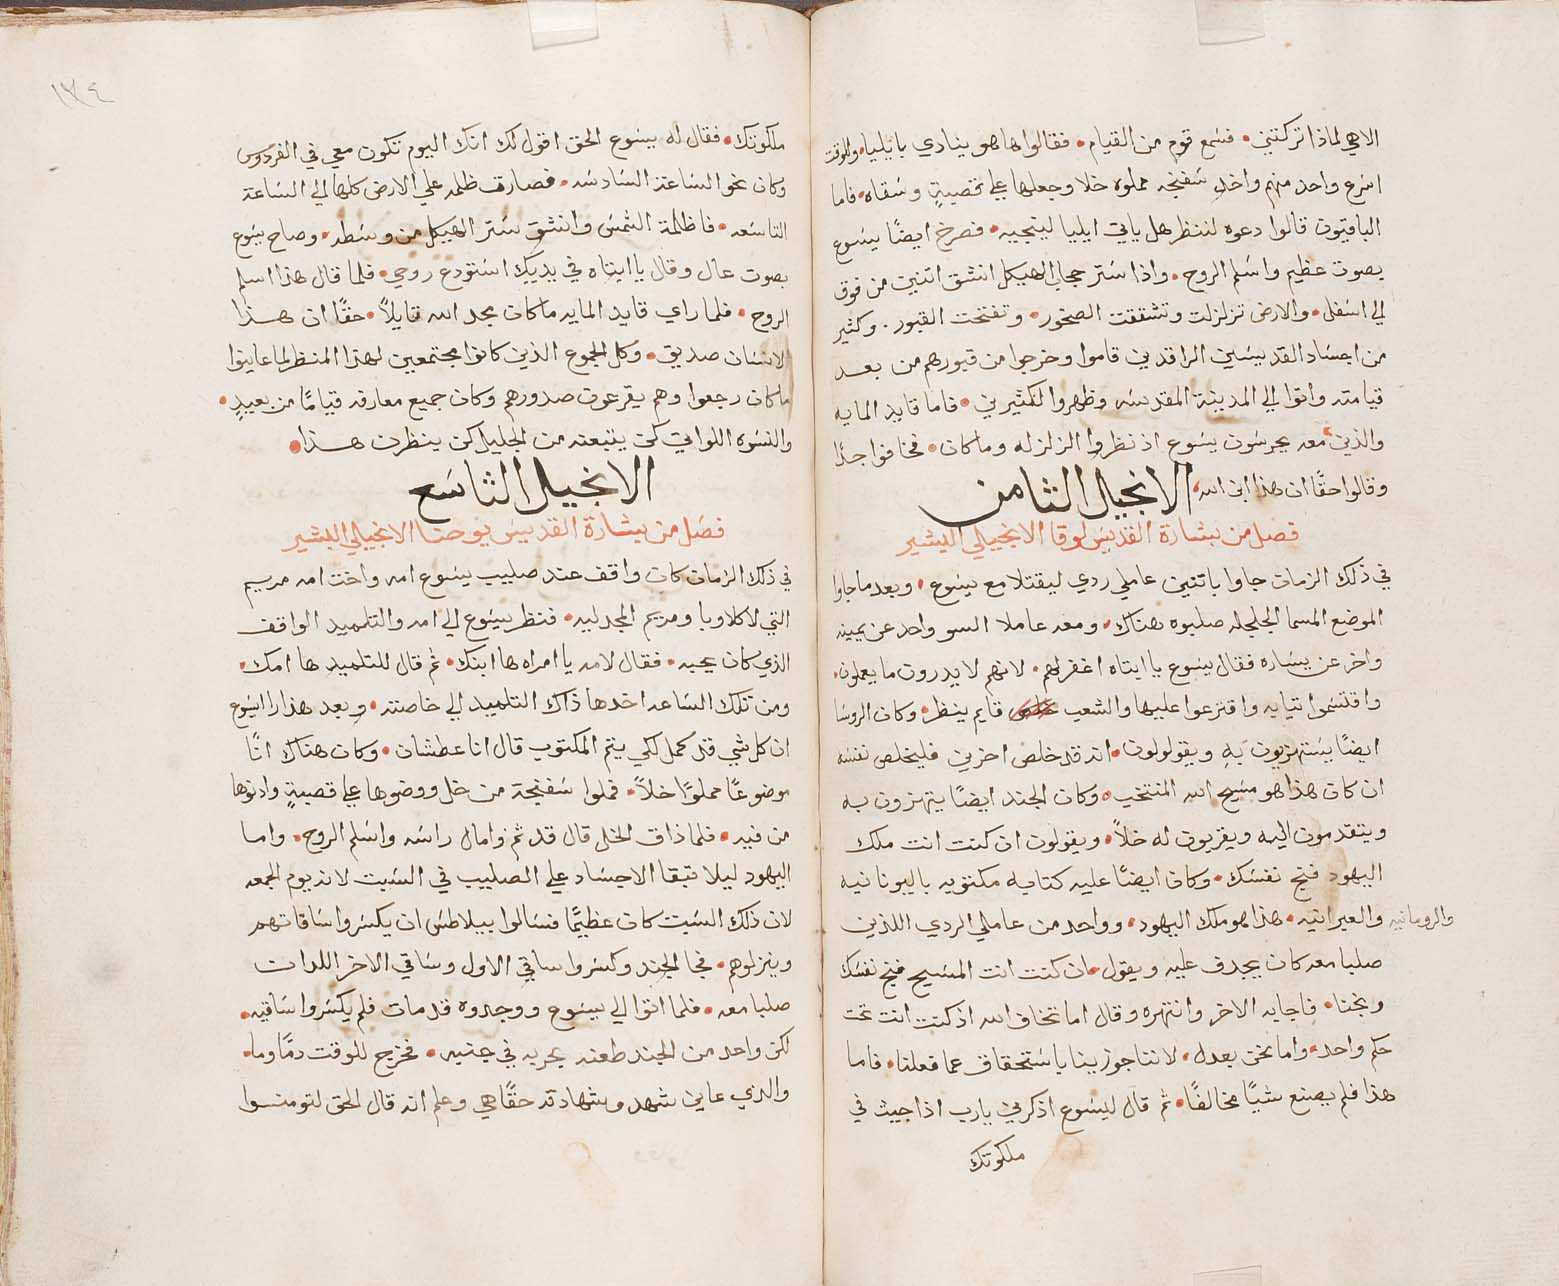 الاهي لماذا تركتني • فسمع قوم من القيام • فقالوا ها هو ينادي بايليا • وللوقت
اسرع واحد منهم واخذ سفنجه مملوه خلا وجعلها علي قصبةٍ وسقاه • فاما
الباقيون قالوا دعوه لننظر هل ياتي ايليا لينجيه • فصرخ ايضًا يسوع
بصوت عظيم واسلم الروح • واذا ستر حجال الهيكل انشق اثنين من فوق
الي اسفل • والارض تزلزلت وتشققت الصخور • وتفتحت القبور . وكثير
من اجساد القديسين الراقدين قاموا وخرجوا من قبورهم من بعد
قيامته واتوا الي المدينة المقدسه وظهروا لكثيرين • فاما قايد المايه
والذين معه يحرسون يسوع اذ نظروا الزلزله وما كان • فخافوا جدًا
وقالوا حقًا ان هذا ابن الله • الانجيل الثامن
فصل من بشارة القديس لوقا الانجيلي البشير
في ذلك الزمان جاوا باثنين عاملي ردي ليقتلا مع يسوع • وبعد ما جاوا
الموضع المسما الجلجله صلبوه هناك • ومعه عاملا السو واحد عن يمينه
واخر عن يساره فقال يسوع يا ابتاه اغفر لهم • لانهم لا يدرون ما يعملون •
واقتسموا ثيابه واقترعوا عليها والشعب قايم ينظر • وكان الروسا
ايضًا يستهزيون به ويقولولون • انه قد خلص اخرين فليخلص نفسه
ان كان هذا هو مسيح الله المنتخب • وكان الجند ايضًا يتهزون به
ويتقدمون اليه ويقربون له خلاً • ويقولون ان كنت انت ملك
اليهود فنج نفسك • وكان ايضًا عليه كتابه مكتوبه باليونانيه
والرومانيه والعبرانيه • هذا هو ملك اليهود • وواحد من عاملي الردي اللذين
صلبا معه كان يجدف عليه ويقول • ان كنت انت المسيح فنج نفسك
ونجنا • فاجابه الاخر وانتهره وقال اما تخاف الله اذ كنت انت تحت
حكم واحد • واما نحن بعدل • لاننا جوزينا باستحقاق عما فعلنا • فاما
هذا فلم يصنع شيًا مخالفًا • ثم قال ليسوع اذكرني يارب اذا جيت في
ملكوتك
١٣٤
ملكوتك • فقال له يسوع الحق اقول لك انك اليوم تكون معي في الفردوس
وكان نحو الساعة السادسه • فصارت ظلمه علي الارض كلها الي الساعة
التاسعه • فاظلمة الشمس وانشق ستر الهيكل من وسطه • وصاح يسوع
بصوت عال وقال يا ابتاه في يديك استودع روحي • فلما قال هذا اسلم
الروح • فلما راي قايد المايه ما كان مجد الله قايلاً • حقًا ان هذا
الانسان صديق • وكل الجموع الذين كانوا مجتمعين لهذا المنظر لما عاينوا
ما كان رجعوا وهم يقرعون صدورهم وكان جميع معارفه قيامًا من بعيدٍ •
والنسوه اللواتي كن يتبعنه من الجليل كن ينظرن هذا •
الانجيل التاسع
فصل من بشارة القديس يوحنا الانجيلي البشير
في ذلك الزمان كان واقف عند صليب يسوع امه واخت امه مريم
التي لاكلاوبا ومريم المجدليه • فنظر يسوع الي امه والتلميد الواقف
الذي كان يحبه • فقال لامه يا امراه ها ابنك • ثم قال للتلميد ها امك •
ومن تلك الساعه اخدها ذاك التلميد الي خاصته • وبعد هذا را يسوع
ان كل شي قد كمل لكي يتم المكتوب قال انا عطشان • وكان هناك انًا
موضوعًا مملوًا خلاً • فملوا سفنجة من خل ووضوها علي قصبةٍ وادنوها
من فيه • فلما ذاق الخل قال قد تم وامال راسه واسلم الروح • واما
اليهود ليلا تبقا الاجساد علي الصليب في السبت لانه يوم الجمعه
لان ذلك السبت كان عظيمًا فسالوا بيلاطس ان يكسروا ساقاتهم
وينزلوهم • فجا الجند وكسروا ساقي الاول وساقي الاخر اللدان
صلبا معه • فلما اتوا الي يسوع ووجدوه قد مات فلم يكسروا ساقيه •
لكن واحد من الجند طعنه بحربه في جنبه • فخرج للوقت دمًا وما •
والذي عاين شهد وشهادته حقًا هي وعلم انه قال الحق لتومنوا